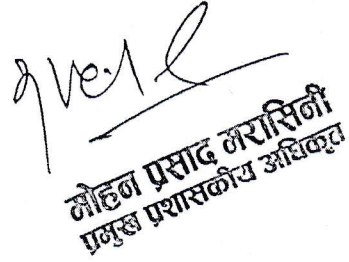 मोहन प्रसाद मरासिनी
प्रमुख प्रशासकीय अधिकृत